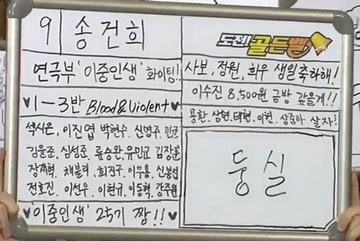 9 송건희
연극부 '이중인생' 화이팅!
♥ 1-3반 Blood & Violent ♥
이진엽 박현수 신명주
김윤준 심성준 류승완 유민교 김장훈
장재혁 채불리 최진규 이우용 신봉섭
전호진 이선우 이현규 이동혁 강주원
'이중인생' 25기 짱!!
도전 골든벨
사보, 정원, 희우 생일축하해!
이수진 8,500원 금방 갚을게!!
용환, 상현, 태현, 이헌, 상준아 살자!
둥실